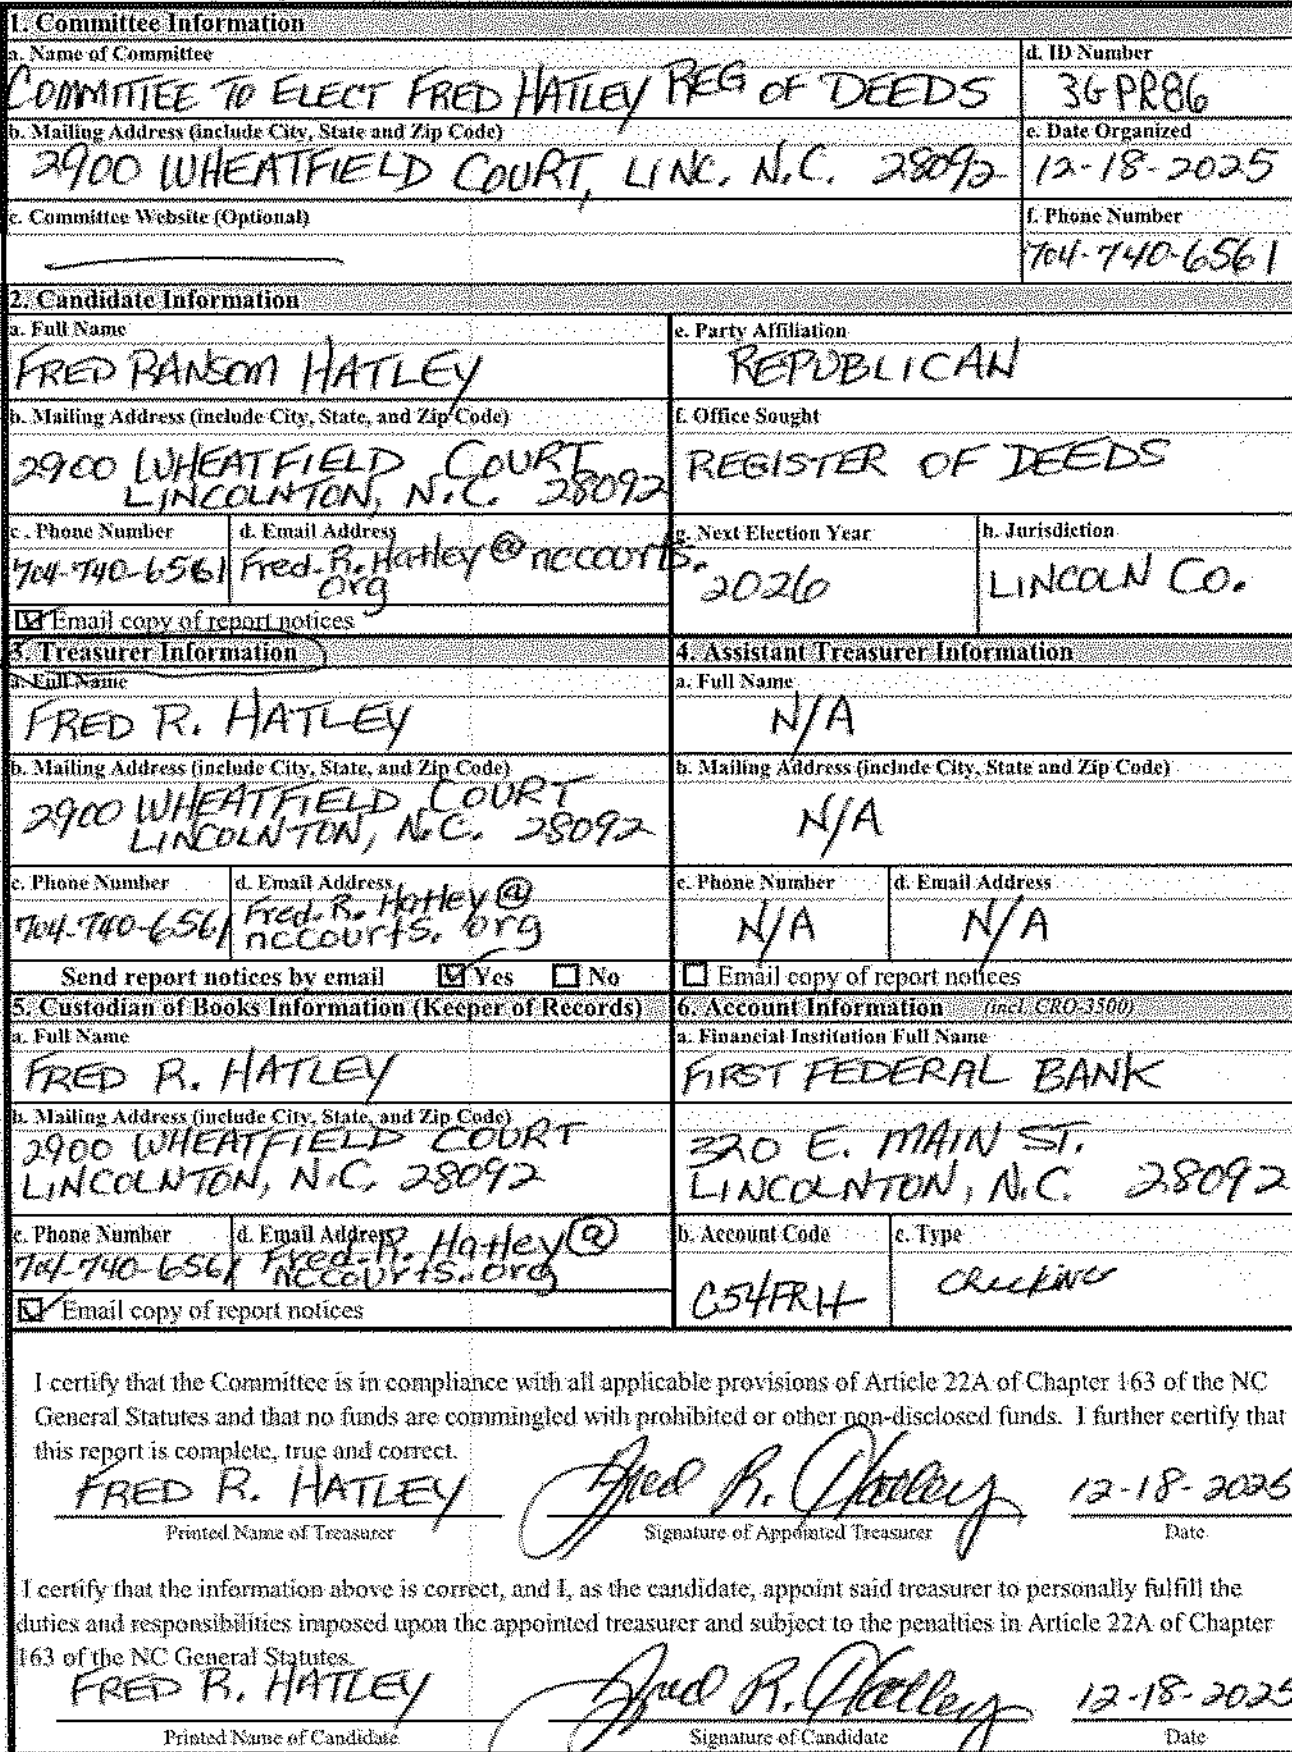 1. Committee Information
a. Name of Committee
COMMITTEE TO ELECT FRED HATLEY REG OF DEEDS
d. ID Number
3GPR86
b. Mailing Address (include City, State and Zip Code)
2900 WHEATFIELD COURT, LINC. N.C. 28092
e. Date Organized
12-18-2025
c. Committee Website (Optional)
f. Phone Number
704-740-6561
2. Candidate Information
a. Full Name
FRED RANSOM HATLEY
e. Party Affiliation
REPUBLICAN
b. Mailing Address (include City, State, and Zip Code)
2900 WHEATFIELD COURT
LINCOLNTON, N.C. 28092
f. Office Sought
REGISTER OF DEEDS
c. Phone Number
704-740-6561
d. Email Address
Fred.R.Hatley@nccourts.
org
g. Next Election Year
2026
h. Jurisdiction
LINCOLN CO.
Email copy of report notices
3. Treasurer Information
a. Full Name
FRED R. HATLEY
b. Mailing Address (include City, State, and Zip Code)
2900 WHEATFIELD COURT
LINCOLNTON, N.C. 28092
c. Phone Number
704-740-6561
d. Email Address
Fred.R.Hatley@
nccourts.org
Send report notices by email Yes No
4. Assistant Treasurer Information
a. Full Name
N/A
b. Mailing Address (include City, State and Zip Code)
N/A
c. Phone Number
N/A
d. Email Address
N/A
Email copy of report notices
5. Custodian of Books Information (Keeper of Records)
a. Full Name
FRED R. HATLEY
b. Mailing Address (include City, State, and Zip Code)
2900 WHEATFIELD COURT
LINCOLNTON, N.C. 28092
c. Phone Number
704-740-6561
d. Email Address
Fred.R.Hatley@
nccourts.org
Email copy of report notices
6. Account Information (incl. CRO-3500)
a. Financial Institution Full Name
FIRST FEDERAL BANK
320 E. MAIN ST.
LINCOLNTON, N.C. 28092
b. Account Code
C54FRH
c. Type
Checking
I certify that the Committee is in compliance with all applicable provisions of Article 22A of Chapter 163 of the NC
General Statutes and that no funds are commingled with prohibited or other non-disclosed funds. I further certify that
this report is complete, true and correct.
FRED R. HATLEY Fred R. Hatley 12-18-2025
Printed Name of Treasurer Signature of Appointed Treasurer Date
I certify that the information above is correct, and I, as the candidate, appoint said treasurer to personally fulfill the
duties and responsibilities imposed upon the appointed treasurer and subject to the penalties in Article 22A of Chapter
163 of the NC General Statutes.
FRED R. HATLEY Fred R. Hatley 12-18-2025
Printed Name of Candidate Signature of Candidate Date